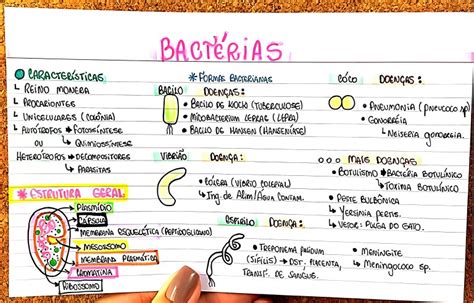 BACTÉRIAS
CARACTERÍSTICAS
↳ REINO MONERA
↳ PROCARIONTES
↳ UNICELULARES (COLÔNIA)
↳ AUTÓTROFOS → FOTOSSÍNTESE
OU → QUIMIOSSÍNTESE
HETERÓTROFOS → DECOMPOSITORES
↳ PARASITAS
* ESTRUTURA GERAL
PLASMÍDIO
CÁPSULA
MEMBRANA ESQUELÉTICA (PEPTIDOGLICANO)
MESOSSOMO
MEMBRANA PLASMÁTICA
CROMATINA
RIBOSSOMO
* FORMAS BACTERIANAS
BACILO DOENÇAS:
• BACILO DE KOCH (TUBERCULOSE)
• MICROBACTERIUM LEPRAE (LEPRA)
• BACILO DE HANSEN (HANSENÍASE)
VIBRIÃO DOENÇA:
• CÓLERA (VIBRIO
↳ Ing. de Alim/Água CONTAM.
ESPIRILO DOENÇA:
• TREPONEMA
(SÍFILIS) → DST, PLACENTA,
TRANSF. DE SANGUE.
CÓCO DOENÇAS:
• PNEUMONIA
• GONORRÉIA
↳ NEISERIA
MAIS DOENÇAS:
• BOTULISMO → BACTÉRIA BOTULÍNICO
↳ TOXINA BOTULÍNICO
• PESTE BULBÔNICA
↳ YERSINIA PERTIS.
↳ VETOR: PULGA DO GATO.
• MENINGITE
↳ MENINGOCOCO SP.